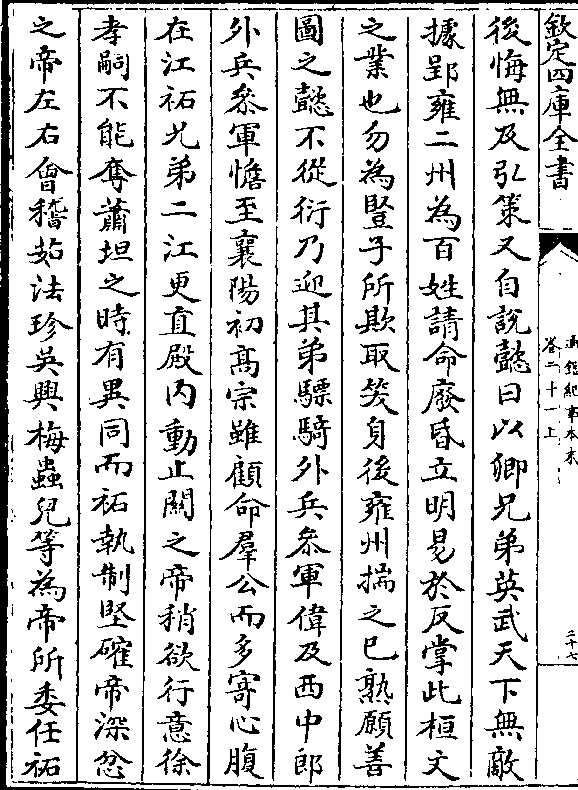 欽定四庫全書
通鑑紀事本末
卷二十一上
二十七
後悔無及弘策又自說懿曰以卿兄弟英武天下無敵
據郢雍二州為百姓請命廢昏立明易於反掌此桓文
之業也勿為豎子所欺取笑身後雍州揣之已熟願善
圖之懿不從衍乃迎其弟驃騎外兵參軍偉及西中郎
外兵參軍憺至襄陽初高宗雖顧命羣公而多寄心腹
在江祏兄弟二江更直殿内動止關之帝稍欲行意徐
孝嗣不能奪蕭坦之時有異同而祏執制堅確帝深忿
之帝左右會稽茹法珍吳興梅蟲兒等為帝所委任祏